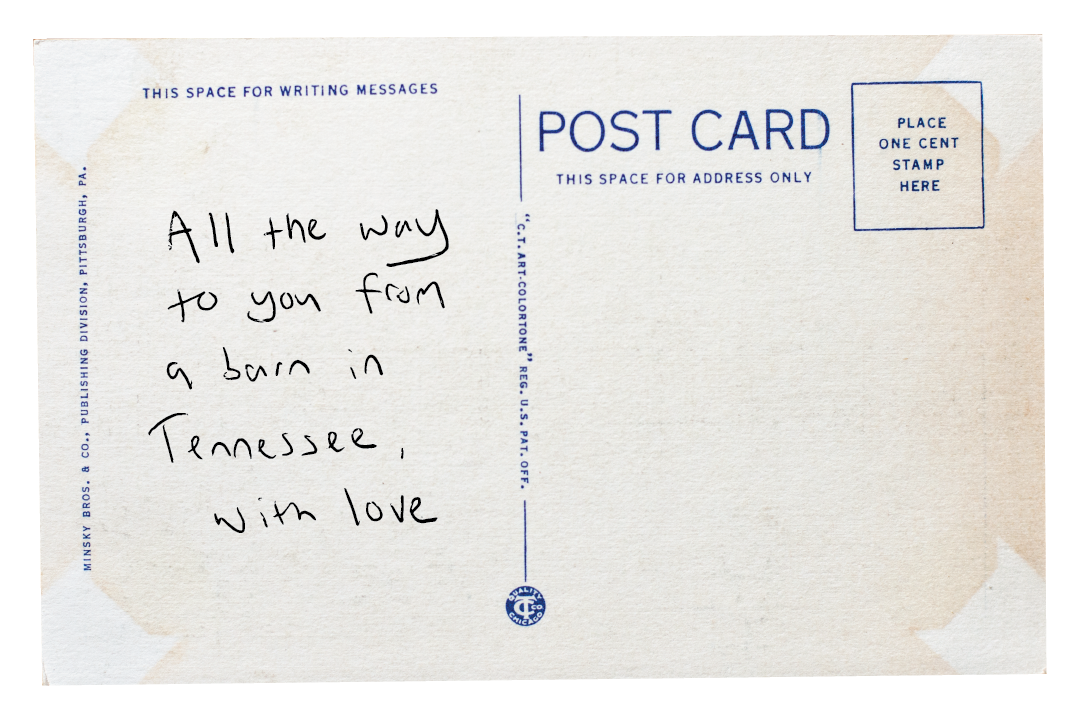 THIS SPACE FOR WRITING MESSAGES
POST CARD
THIS SPACE FOR ADDRESS ONLY
PLACE
ONE CENT
STAMP
HERE
MINSKY BROS. & CO., PUBLISHING DIVISION, PITTSBURGH, PA.
All the way
to you from
a barn in
Tennessee,
with love
"C.T. ART-COLORTONE" REG. U.S. PAT. OFF.
QUALITY
CT CO.
CHICAGO